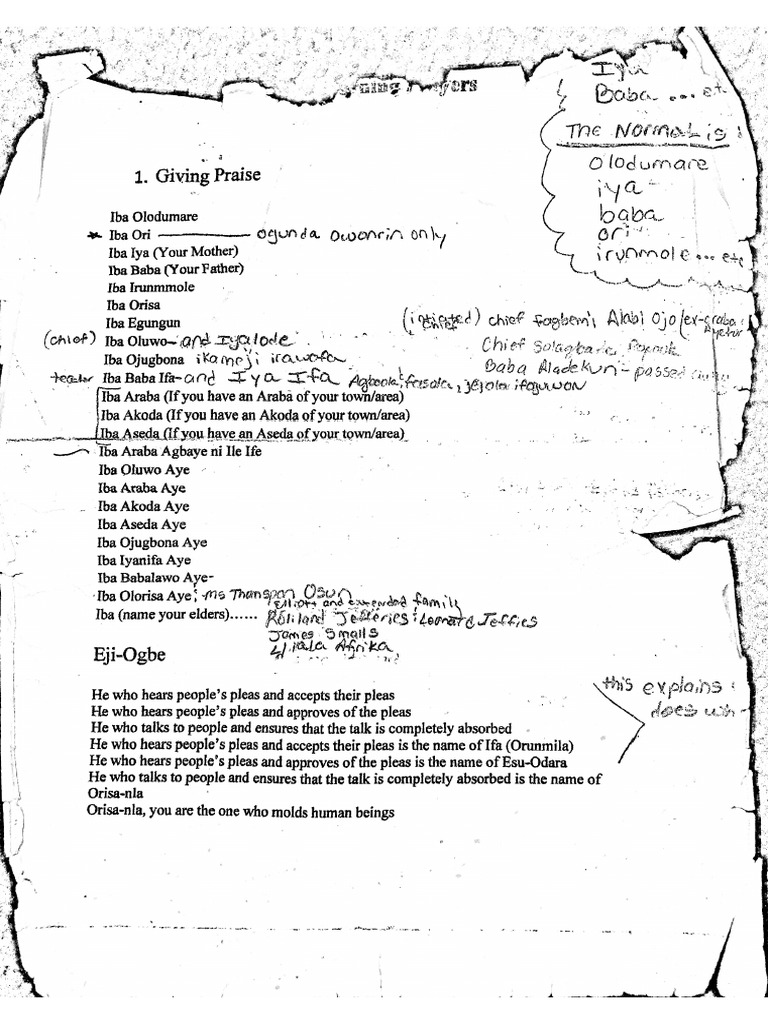 Iya
Baba ... etc
THE NORMAL is :
olodumare
iya
baba
ori
irunmole ... etc
1. Giving Praise
Iba Olodumare
* Iba Ori — ogunda owonrin only
Iba Iya (Your Mother)
Iba Baba (Your Father)
Iba Irunmmole
Iba Orisa
Iba Egungun
(intiated) chief fagbemi Alabi Ojo
(chief) Iba Oluwo - and Iyalode
Chief
Iba Ojugbona ikameji irawofa
Baba Aladekun - passed away
teacher Iba Baba Ifa - and Iya Ifa
Iba Araba (If you have an Araba of your town/area)
Iba Akoda (If you have an Akoda of your town/area)
Iba Aseda (If you have an Aseda of your town/area)
Iba Araba Agbaye ni Ile Ife
Iba Oluwo Aye
Iba Araba Aye
Iba Akoda Aye
Iba Aseda Aye
Iba Ojugbona Aye
Iba Iyanifa Aye
Iba Babalawo Aye-
Iba Olorisa Aye; Ms Osun
and extended family
Iba (name your elders)...... Jefferies: Leonard Jeffies
James Smalls
Afrika,
Eji-Ogbe
He who hears people's pleas and accepts their pleas
He who hears people's pleas and approves of the pleas
He who talks to people and ensures that the talk is completely absorbed
He who hears people's pleas and accepts their pleas is the name of Ifa (Orunmila)
He who hears people's pleas and approves of the pleas is the name of Esu-Odara
He who talks to people and ensures that the talk is completely absorbed is the name of
Orisa-nla
Orisa-nla, you are the one who molds human beings
this explains
does